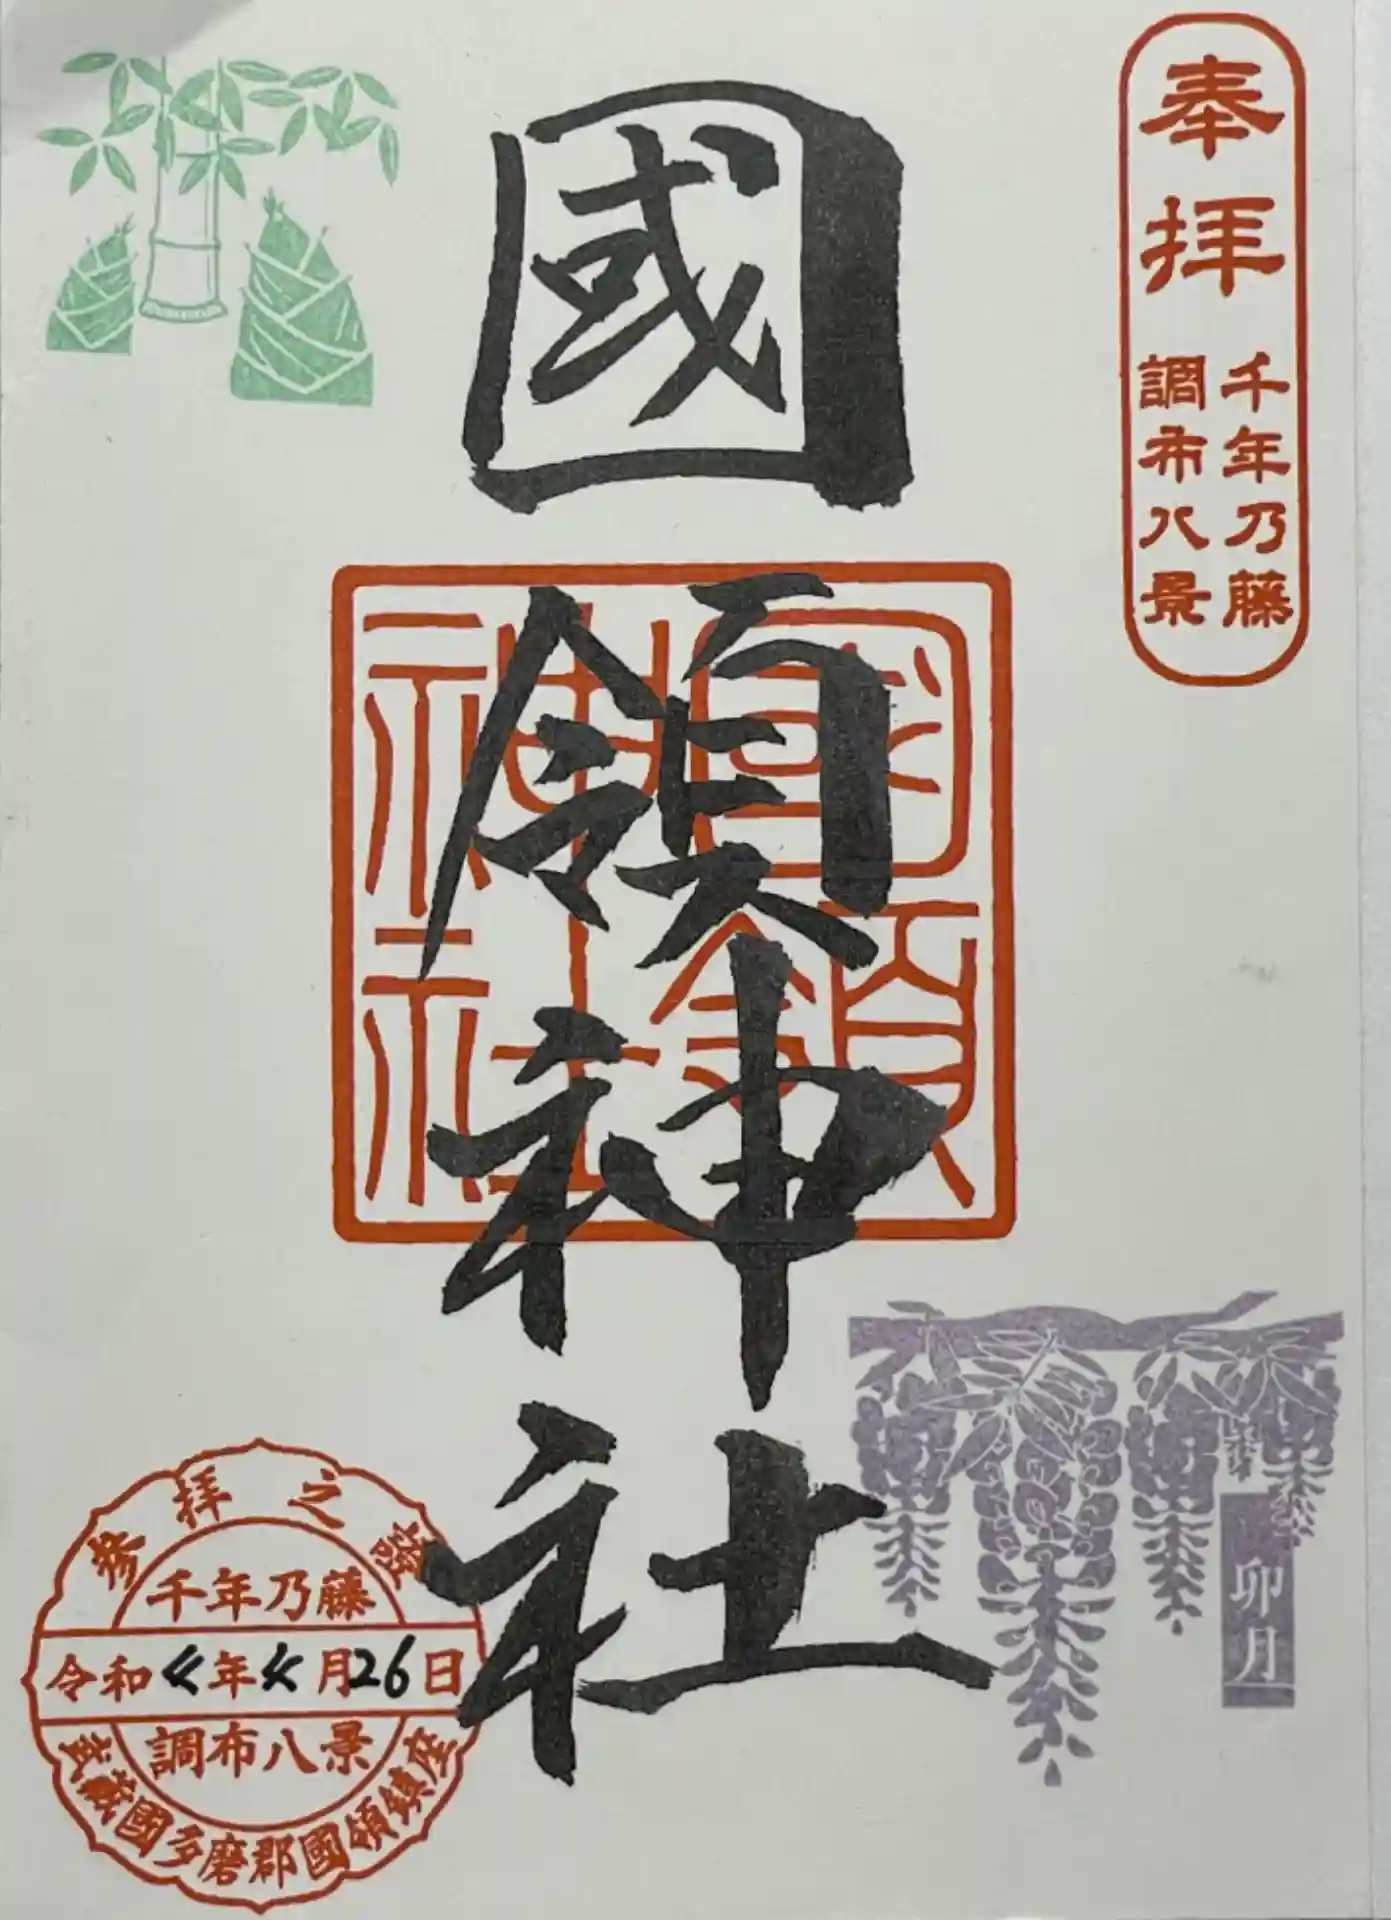 奉拝
千年乃藤
調布八景
國領神社
國領
神社
卯月
參拝之證
千年乃藤
令和 年 月26日
調布八景
武蔵國多磨郡國領鎮座